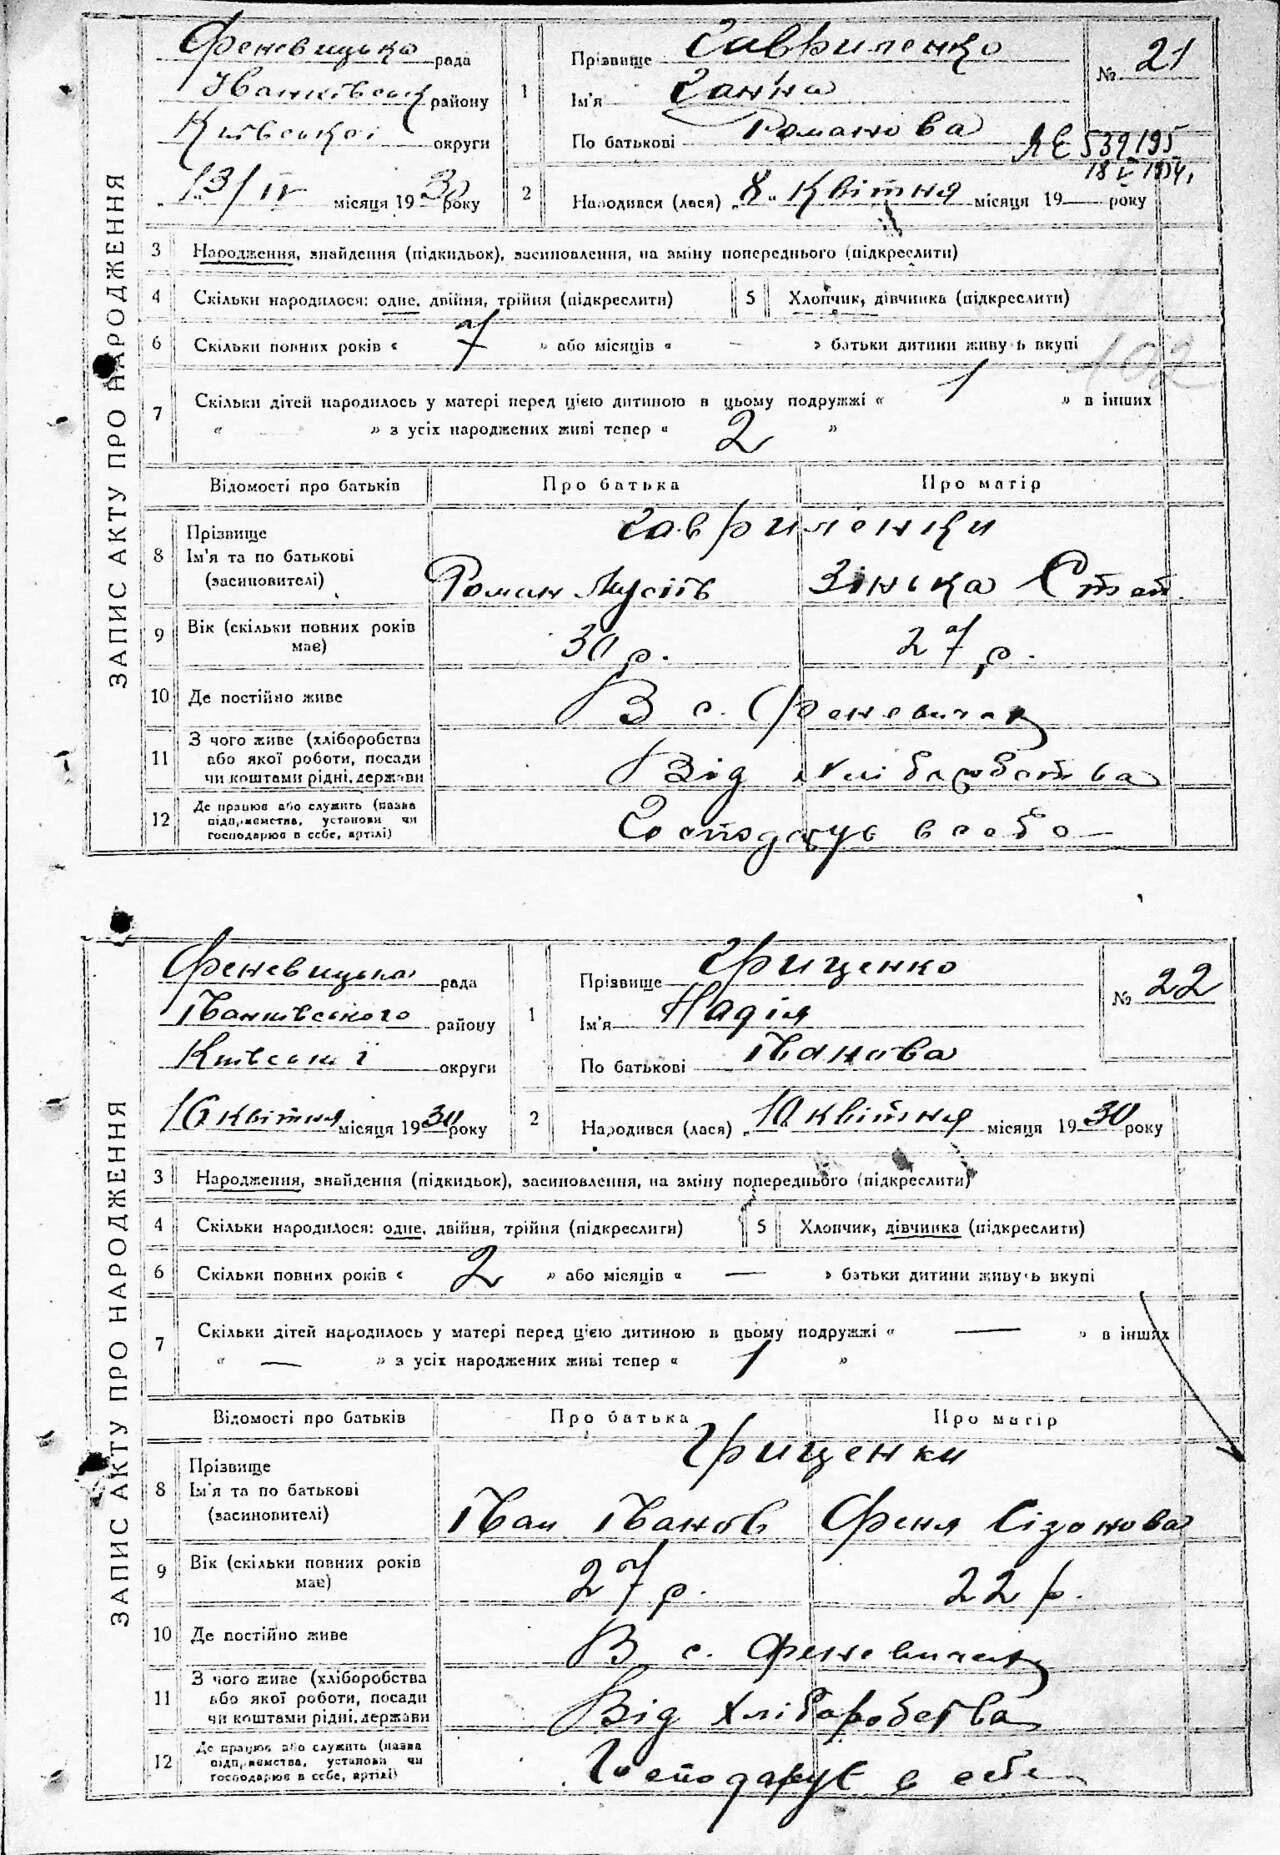 ЗАПИС АКТУ ПРО НАРОДЖЕННЯ
Феневицька рада
Іванківськ району
Київської округи
„13/IV місяця 1930 року
1 Прізвище Гавриленко
Ім'я Ганна
По батькові Романова
№ 21
ЯЕ 539195
18 V 1954,
2 Народився (лася) „8„ Квітня місяця 19 року
3 Народження, знайдення (підкидьок), засиновлення, на зміну попереднього (підкреслити)
4 Скільки народилося: одне, двійня, трійня (підкреслити) 5 Хлопчик, дівчинка (підкреслити)
6 Скільки повних років « 7 » або місяців « — » батьки дитини живуть вкупі
102
7 Скільки дітей народилось у матері перед цією дитиною в цьому подружжі « 1 » в інших
« — » з усіх народжених живі тепер « 2 »
Відомості про батьків Про батька Про матір
8 Прізвище
Ім'я та по батькові
(засиновителі)
Гавриленки
Роман Мусіїв Зінька Степ.
9 Вік (скільки повних років
має)
30 р. 27 р.
10 Де постійно живе В с. Феневичах
11 З чого живе (хліборобства
або якої роботи, посади
чи коштами рідні, держави
Від хліборобства
12 Де працює або служить (назва
підприємства, установи чи
господарює в себе, артілі)
Господарує в себе
ЗАПИС АКТУ ПРО НАРОДЖЕННЯ
Феневицька рада
Іванківського району
Київської округи
16 квітня місяця 1930 року
1 Прізвище Грищенко
Ім'я Надія
По батькові Іванова
№ 22
2 Народився (лася) „10 квітня місяця 1930 року
3 Народження, знайдення (підкидьок), засиновлення, на зміну попереднього (підкреслити)
4 Скільки народилося: одне, двійня, трійня (підкреслити) 5 Хлопчик, дівчинка (підкреслити)
6 Скільки повних років « 2 » або місяців « — » батьки дитини живуть вкупі
7 Скільки дітей народилось у матері перед цією дитиною в цьому подружжі « — » в інших
« — » з усіх народжених живі тепер « 1 »
Відомості про батьків Про батька Про матір
8 Прізвище
Ім'я та по батькові
(засиновителі)
Грищенки
Іван Іванов Феня Сізонова
9 Вік (скільки повних років
має)
27 р. 22 р.
10 Де постійно живе В с. Феневичах
11 З чого живе (хліборобства
або якої роботи, посади
чи коштами рідні, держави
Від хліборобства
12 Де працює або служить (назва
підприємства, установи чи
господарює в себе, артілі)
Господарує в себе